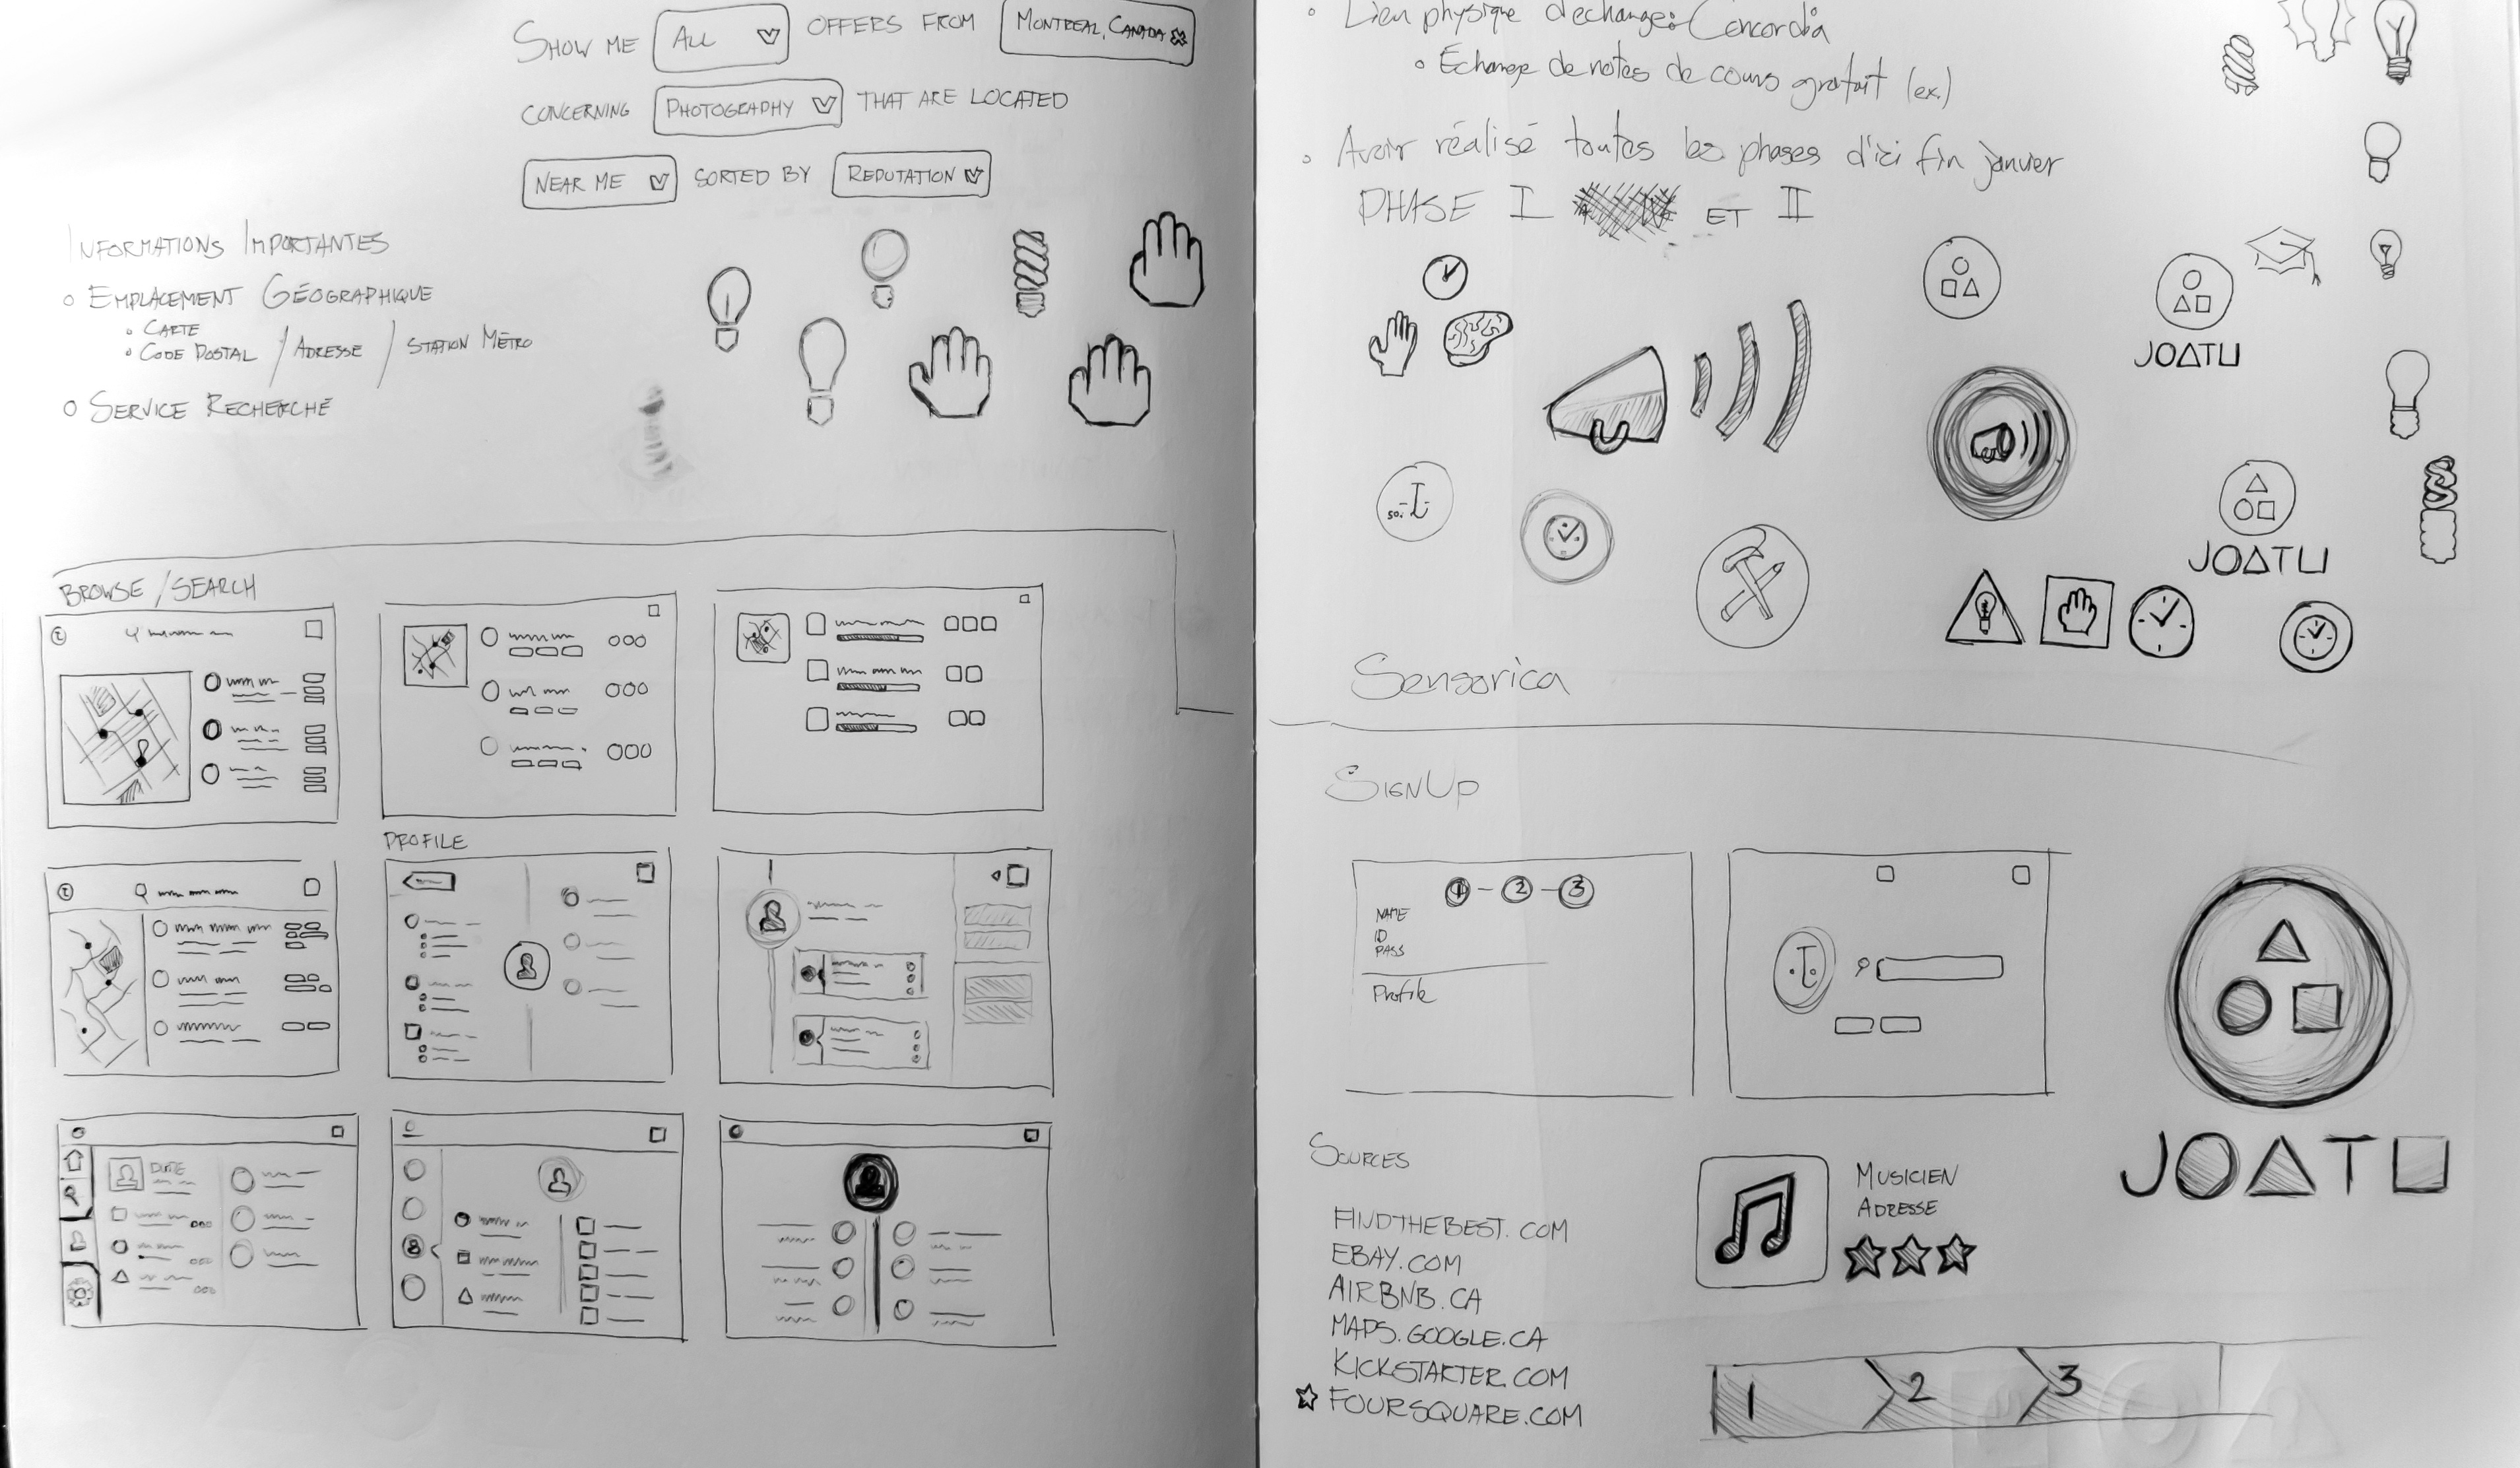 SHOW ME ALL OFFERS FROM MONTREAL, CANADA
CONCERNING PHOTOGRAPHY THAT ARE LOCATED
NEAR ME SORTED BY REPUTATION
INFORMATIONS IMPORTANTES
EMPLACEMENT GÉOGRAPHIQUE
CARTE
CODE POSTAL / ADRESSE / STATION MÉTRO
SERVICE RECHERCHÉ
BROWSE / SEARCH
PROFILE
Lien physique d'échange: Concordia
Échange de notes de cours gratuit (ex.)
Avoir réalisé toutes les phases d'ici fin janvier
PHASE I ET II
JOATU
JOATU
Sensorica
SIGNUP
1 - 2 - 3
NAME
ID
PASS
Profile
JOATU
SOURCES
FINDTHEBEST.COM
EBAY.COM
AIRBNB.CA
MAPS.GOOGLE.CA
KICKSTARTER.COM
FOURSQUARE.COM
MUSICIEN
ADRESSE
1 2 3